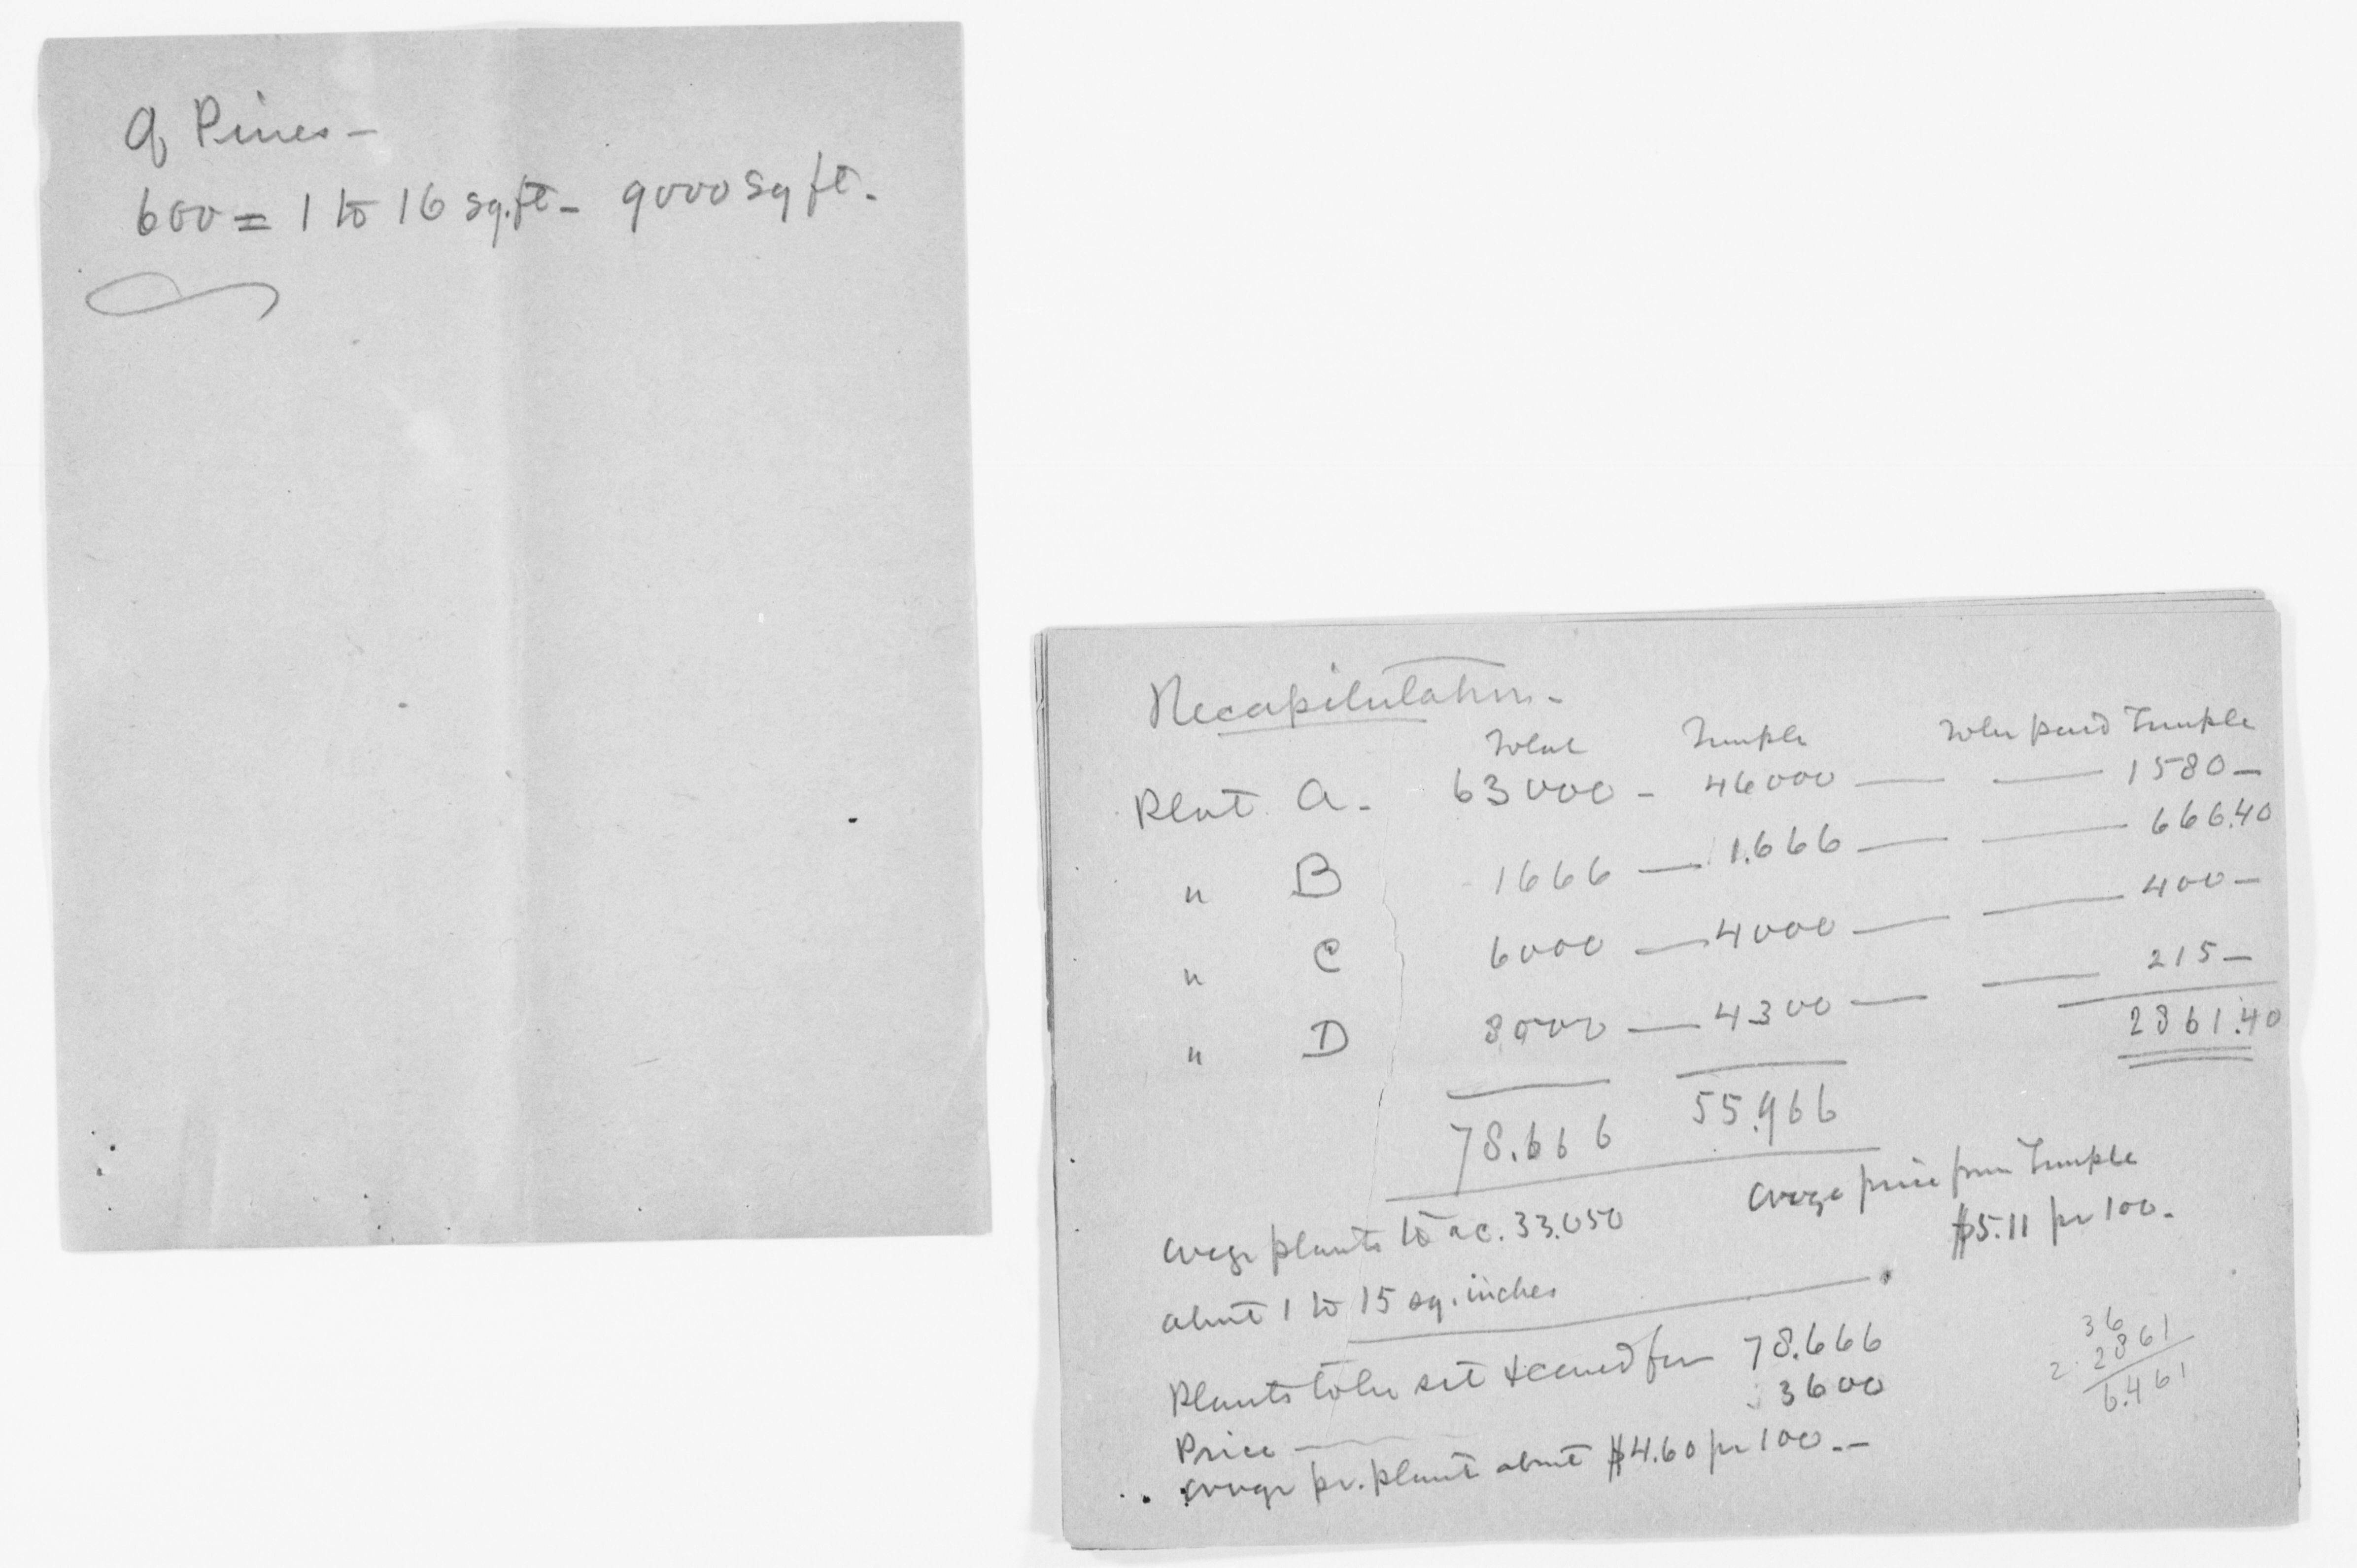 Of Pines –
600 = 1 to 16 sq. ft – 9000 sq ft.
Recapitulation –
Total Temple To be paid Temple
Plot A. 63000 – 46000 — — 1580 –
" B 1666 — 1.666 — — 666.40
" C 6000 — 4000 — — 400 –
" D 8000 — 4300 — — 215 –
2861.40
78.666 55.966
Avege plants to ac. 33.050
Avege price from Temple
$5.11 pr 100.
about 1 to 15 sq. inches
Plants to be set & cared for 78.666
Price — 3600
avege pr. plant about $4.60 pr 100. –
36
2. 2861
6.461